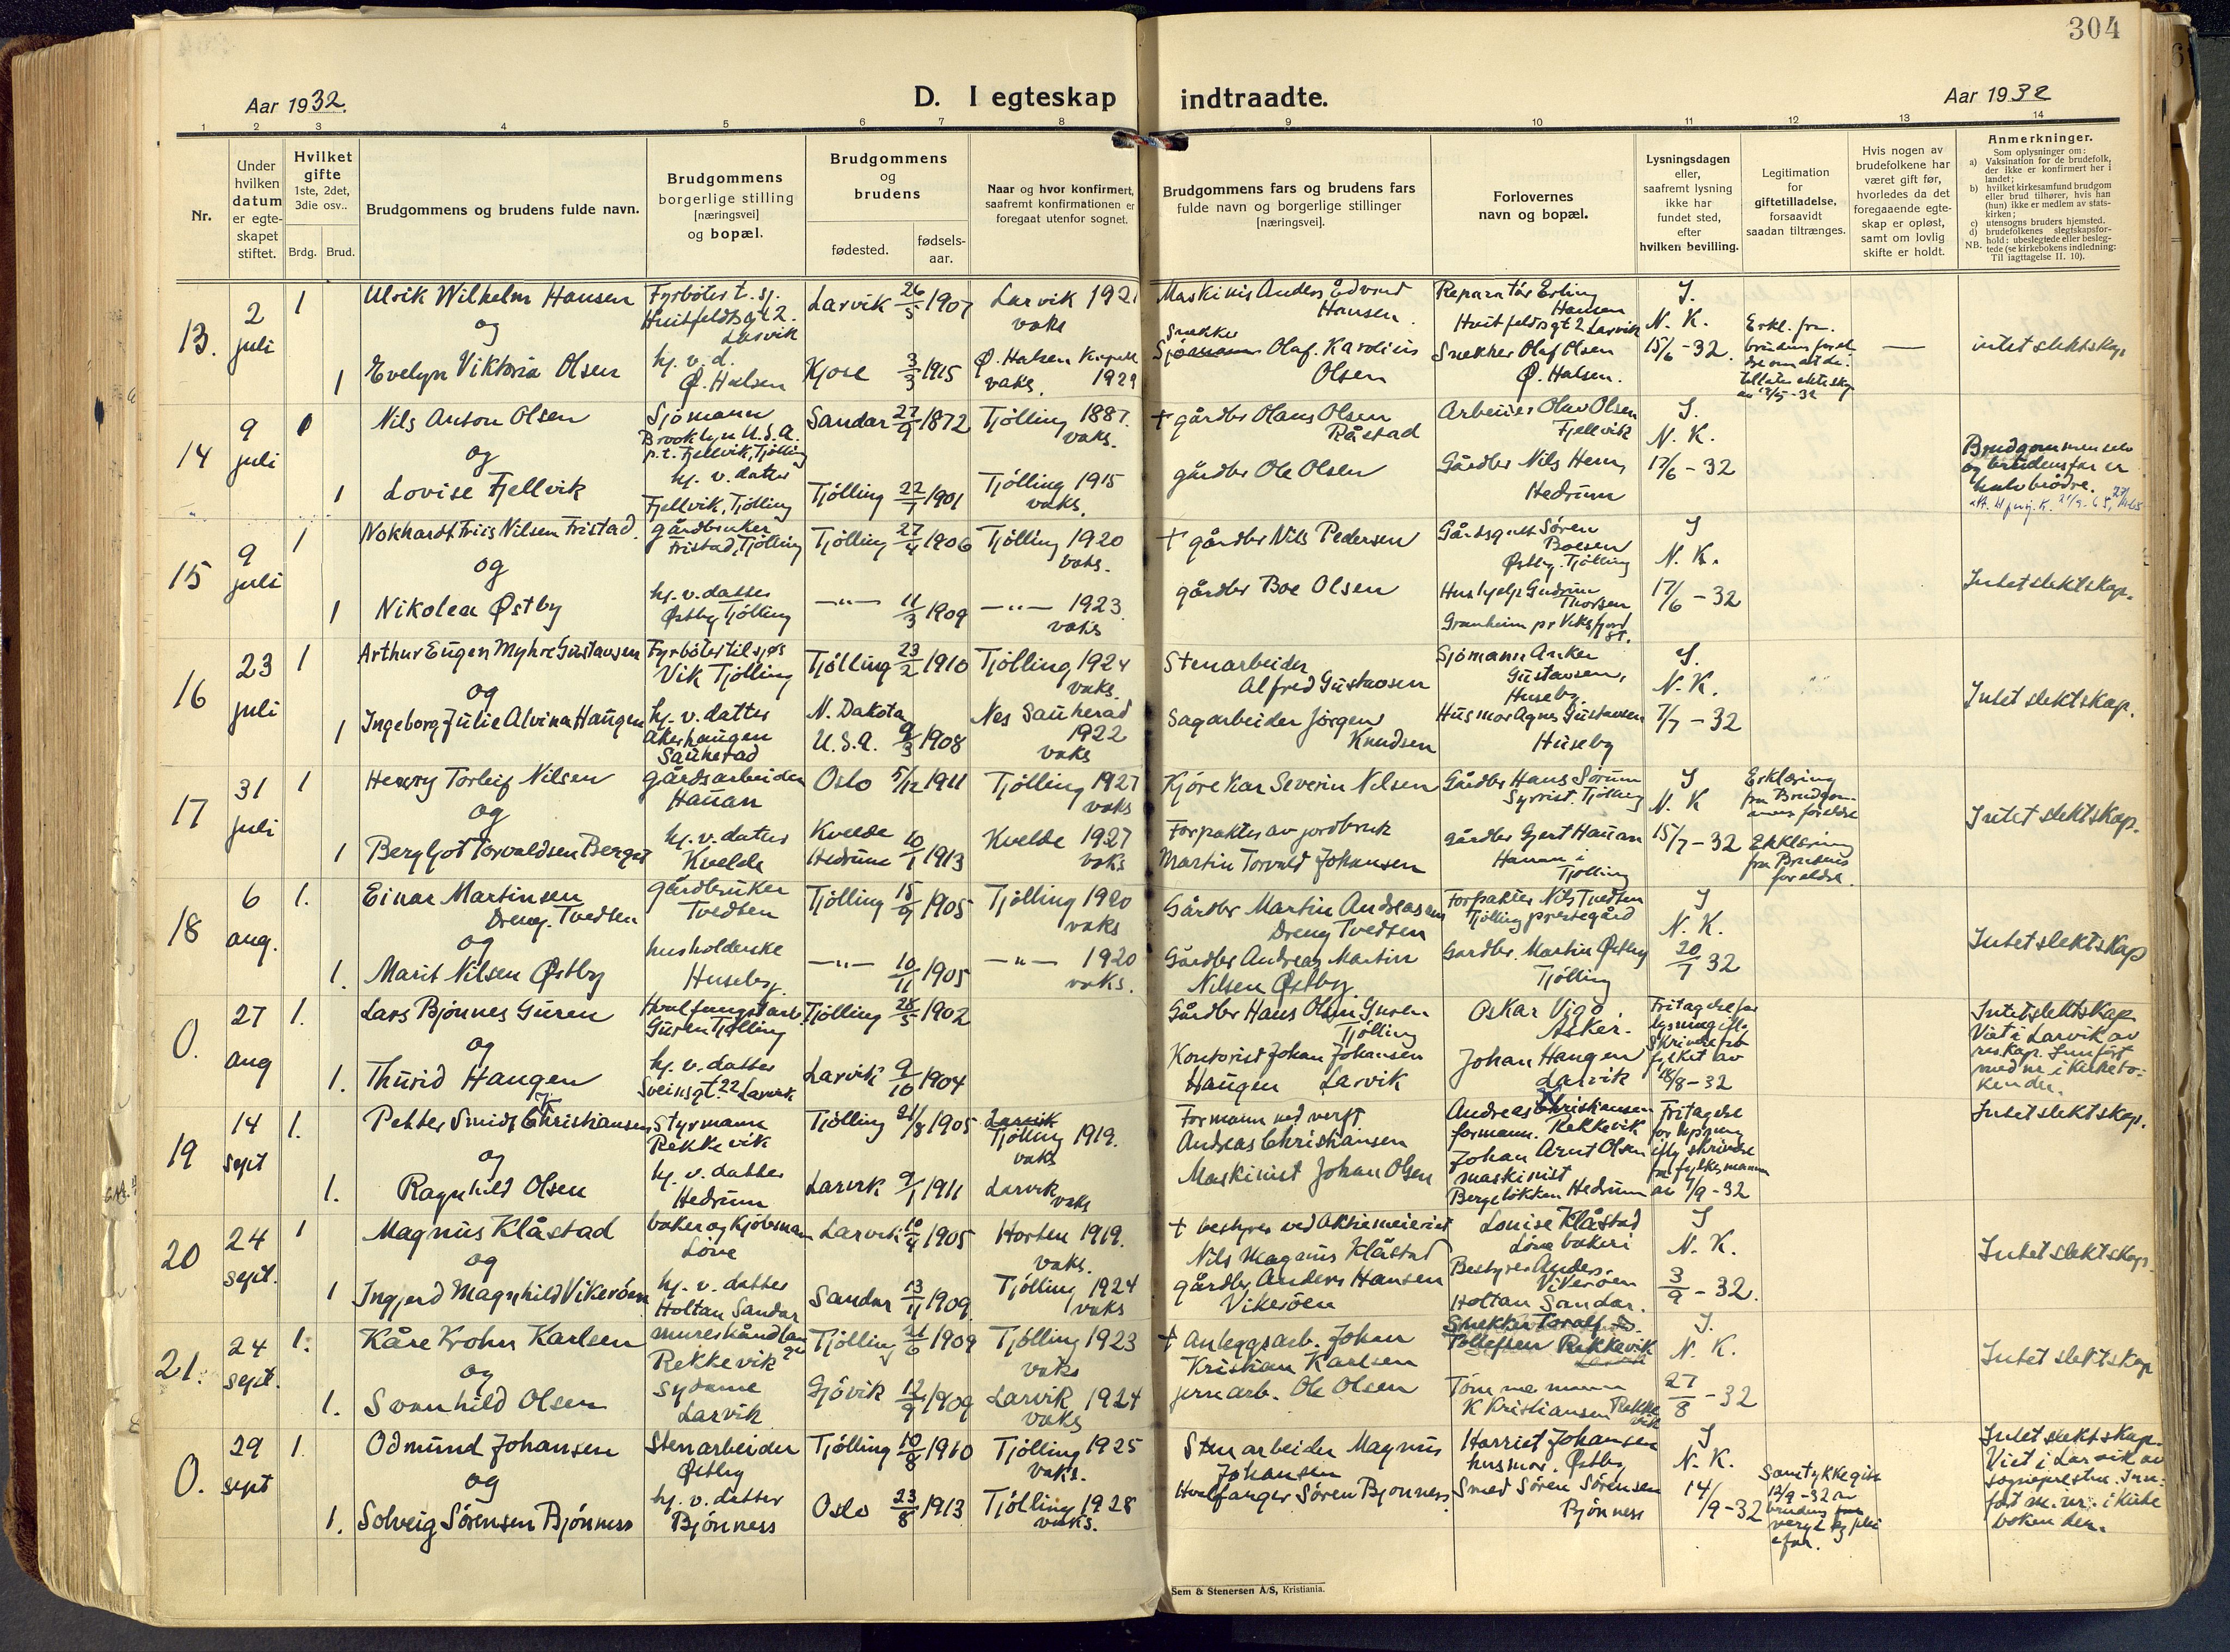 304
Aar 1932.
D. I egteskap indtraadte.
Aar 1932
1 2 3 4 5 6 7 8 9 10 11 12 13 14
Nr.
Under
hvilken
datum
er egte-
skapet
stiftet.
Hvilket
gifte
1ste, 2det,
3die osv..
Brdg. Brud.
Brudgommens og brudens fulde navn.
Brudgommens
borgerlige stilling
[næringsvei]
og bopæl.
Brudgommens
og
brudens
fødested.
fødsels-
aar.
Naar og hvor konfirmert,
saafremt konfirmationen er
foregaat utenfor sognet.
Brudgommens fars og brudens fars
fulde navn og borgerlige stillinger
[næringsvei].
Forlovernes
navn og bopæl.
Lysningsdagen
eller,
saafremt lysning
ikke har
fundet sted,
efter
hvilken bevilling.
Legitimation
for
giftetilladelse,
forsaavidt
saadan tiltrænges.
Hvis nogen av
brudefolkene har
været gift før,
hvorledes da det
foregaaende egte-
skap er opløst,
samt om lovlig
skifte er holdt.
Anmerkninger.
Som oplysninger om:
a) Vaksination for de brudefolk,
der ikke er konfirmert her i
landet;
b) hvilket kirkesamfund brudgom
eller brud tilhører, hvis han
(hun) ikke er medlem av stats-
kirken;
c) utensogns bruders hjemsted.
d) brudefolkenes slegtskapsfor-
hold: ubeslegtede eller besleg-
NB. tede (se kirkebokens indledning:
Til iagttagelse II. 10).
13. 2 juli 1
Ulrik Wilhelm Hansen
Fyrböter t. sj.
Huitfeldtsgt 2.
Larvik
Larvik 26/5 1907
Larvik 1921
vaks
Maskinis Anders Edvard
Hansen.
Reparatör Erling
Hansen
Huitfeldtsgt 2 Larvik
J.
N. K.
15/6-32.
og
1 Evelyn Viktoria Olsen
hj. v. d.
Ø. Halsen
Kjose 3/3 1915
Ø. Halsen Kapell
vaks. 1929
Snekker
Olaf Karolius
Olsen
Snekker Olaf Olsen
Ø. Halsen.
Erkl. fra.
brudens forel
dre om at de
tillater ekteskap
—
intet slektskap
14 9 juli
Nils Anton Olsen
Sjömann
Brooklyn U.S.A.
p.t. Fjellvik, Tjölling
Sandar 27/9 1872
Tjölling 1887.
vaks.
+ gårdbr Olaus Olsen
Råstad
Arbeider Olav Olsen
Fjellvik
J.
N. K.
17/6-32
og
1 Lovise Fjellvik
hj. v. datter
Fjellvik, Tjölling
Tjölling 22/1 1901
Tjölling 1915
vaks.
gårdbr Ole Olsen
Gårdbr Nils Hem,
Hedrum
Brudgommen selv
og brudens far er
halvbrödre.
15 9 juli 1
Nokhardt Friis Nilsen Fristad.
gårdbruker
Fristad, Tjölling
Tjölling 27/4 1906
Tjölling 1920
vaks.
+ gårdbr Nils Pedersen
Gårdsgutt Søren
Boesen
Østby. Tjölling
J
N. K.
17/6-32
og
1 Nikolea Østby
hj. v. datter
Østby Tjölling
—"— 11/3 1909
—"— 1923
vaks
gårdbr Boe Olsen
Hushjelp Gudrun
Thorsen
Granheim pr Viksfjord
st.
Intet slektskap.
16 23 juli 1
Arthur Eugen Myhre Gustavsen
Fyrböter til sjøs
Vik Tjölling
Tjölling 23/2 1910
Tjölling 1924
vaks.
Stenarbeider
Alfred Gustavsen
Sjömann Anker
Gustavsen,
Huseby.
J.
N. K.
7/7-32
og
1 Ingeborg Julie Alvina Haugen
hj. v. datter
Akerhaugen
Sauherad
N. Dakota
U.S.A. 9/3 1908
Nes Sauherad
1922
vaks
Sagarbeider Jörgen
Knudsen
Husmor Agnes Gustavsen
Huseby
Intet slektskap.
17 31 juli 1
Henry Torleif Nilsen
gårdsarbeider
Hauan
Oslo 5/12 1911
Tjölling 1927
vaks
Kjörekar Severin Nilsen
Gårdbr Hans Sörum
Syrrist. Tjölling
J
N. K
15/7-32
Erklæring
fra Brudgom-
mens foreldre
og
1 Bergljot Torvaldsen Berget
hj. v. datter
Kvelde
Kvelde
Hedrum 10/1 1913
Kvelde 1927
vaks
Forpakter av jordbruk
Martin Torvald Johansen
gårdbr Gjert Hauan
Hauan i
Tjölling
Erklæring
fra Brudens
foreldre.
Intet slektskap.
18 6 aug. 1.
Einar Martinsen
Dreng Tvedten
gårdbruker
Tvedten
Tjölling 15/9 1905
Tjölling 1920
vaks
Gårdbr Martin Andreasen
Dreng Tvedten
Forpakter Nils Tvedten
Tjölling prestegård
J
N. K.
20/7 32
og
1. Marit Nilsen Østby
husholderske
Huseby
—"— 10/11 1905
—"— 1920
vaks.
Gårdbr Andreas Martin
Nilsen Østby
Gardbr. Martin Østby
Tjölling
Intet slektskap
0. 27 aug 1.
Lars Bjönnes Guren
Hvalfangstarb.
Guren Tjölling
Tjölling 28/5 1902
Gårdbr Hans Olsen Guren
Tjölling
Oskar Vigo
Asker.
Fritagelse for
lysning ifl.
skrivelse fra
fylket av
18/8-32
og
1. Thurid Haugen
hj. v. datter
Sveinsgt. 22 Larvik
Larvik 9/10 1904
Kontorist Johan Johansen
Haugen Larvik
Johan Haugen
Larvik
Intet slektskap
Viet i Larvik av
res. kap. Innfört
med nr. i kirkebo-
ken der.
19 14 sept 1.
Petter Smidt Christiansen
K
Styrmann
Rekkevik
Tjölling 21/8 1905
Larvik
Tjölling 1919.
vaks
Formann ved verft
Andreas Christiansen
Andreas Christiansen
formann. Rekkevik
Fritagelse
for lysning
iflg skrivelse
fra fylkesmannen
av 1/9-32
og
1. Ragnhild Olsen
hj. v. datter
Hedrum
Larvik 9/1 1911
Larvik
vaks
Maskinist Johan Olsen
Johan Arnt Olsen
maskinist
Bergeløkken Hedrum
Intet slektskap.
20 24 sept. 1
Magnus Klåstad
baker og kjöbmann
Löve
Larvik 10/4 1905
Horten 1919.
vaks.
+ bestyrer ved Aktiemeieriet
Nils Magnus Klåstad
Louise Klåstad
Löve bakeri
J
N. K.
3/9-32.
og
1 Ingjerd Magnhild Vikeröen
hj. v. datter
Holtan Sandar
Sandar 13/11 1909
Tjölling 1924
vaks
gårdbr Anders Hansen
Vikeröen
Bestyrer Anders
Vikeröen
Holtan Sandar.
Intet slektskap.
21. 24 sept. 1.
Kåre Krohn Karlsen
murerhåndlan
ger
Rekkevik
Tjölling 21/6 1909
Tjölling 1923
vaks
+ Anleggsarb. Johan
Kristian Karlsen
Snekker Toralf
Tollefsen Rekkevik
Larvik
J.
N. K.
27/8-32
og
1. Svanhild Olsen
Sydame
Larvik
Gjövik 12/9 1909
Larvik 1924
vaks
jernarb. Ole Olsen
Tömmermann
K Kristiansen Rekke
vik
Intet slektskap
0. 29 sept 1.
Odmund Johansen
Stenarbeider
Østby
Tjölling 10/8 1910
Tjölling 1925
vaks.
Stenarbeider Magnus
Johansen
Harriet Johansen
husmor. Østby
J
N. K.
14/9-32
og
1. Solveig Sörensen Bjönness
hj. v. datter
Bjönness
Oslo 23/8 1913
Tjölling 1928
vaks.
Hvalfanger Sören Bjonness
Smed Sören Sörensen
Bjönness
Samtykke gitt
12/9-32 av
brudens
verge og plei
efar.
Intet slektskap.
Viet i Larvik av
sognepresten. Inn-
fört m. nr. i kirke
boken der.
Sem & Stenersen A/S, Kristiania.